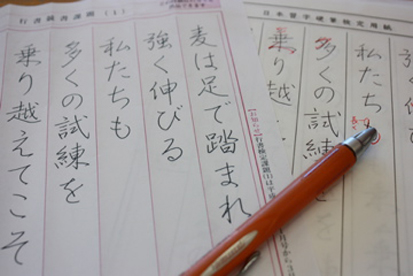 行書規書課題（1）
麦は足で踏まれ
強く伸びる
私たちも
多くの試練を
乗り越えてこそ
日本習字硬筆検定用紙
私たち
多くの試練
乗り越